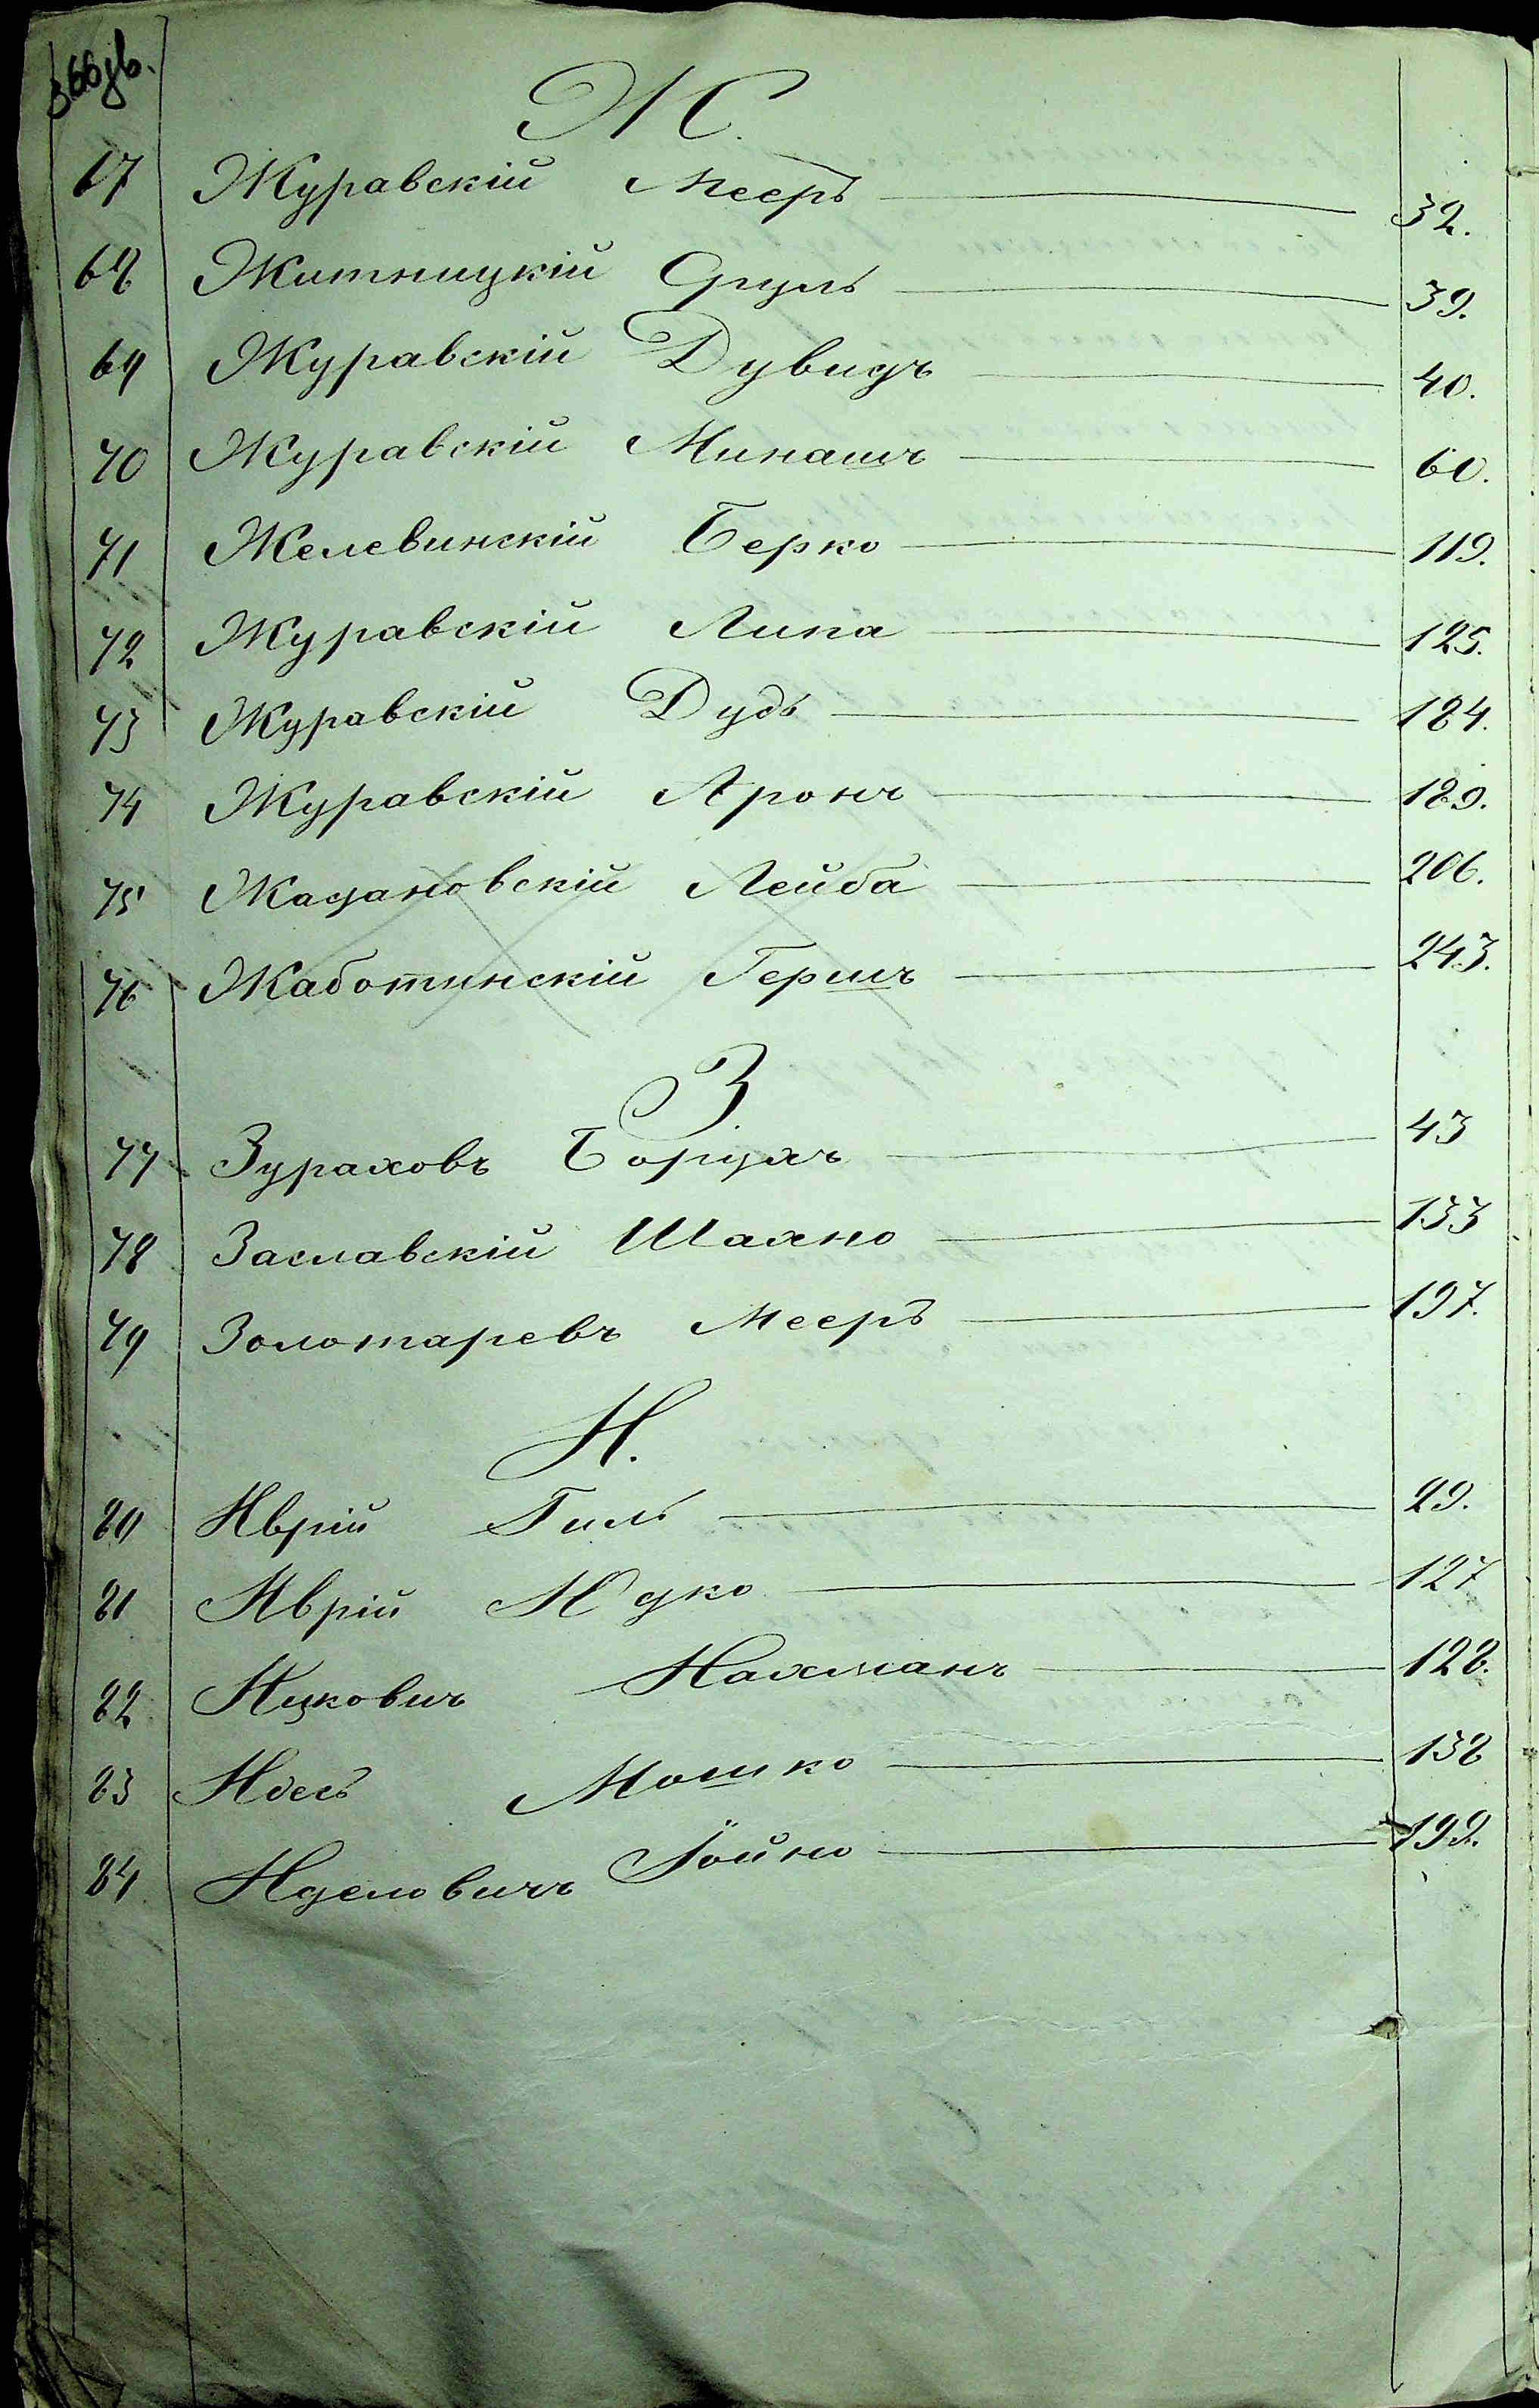 366 зв.
Ж.
67 Журавскій Мееръ 32.
68 Житницкій Сруль 39.
69 Журавскій Дувидъ 40.
70 Журавскій Минашъ 60.
71 Желевинскій Берко 119.
72 Журавскій Липа 125.
73 Журавскій Дудь 184.
74 Журавскій Аронъ 189.
75 Жадановскій Лейба 206.
76 Жаботинскій Гершъ 243.
З.
77 Зураховъ Борухъ 43
78 Заславскій Шахно 133
79 Золотаревъ Мееръ 197.
И.
80 Иврій Гиль 29.
81 Иврій Юдко 127
82 Ицковичъ Нахманъ 128.
83 Идесъ Мошко 138
84 Иделовичъ Іойно 199.